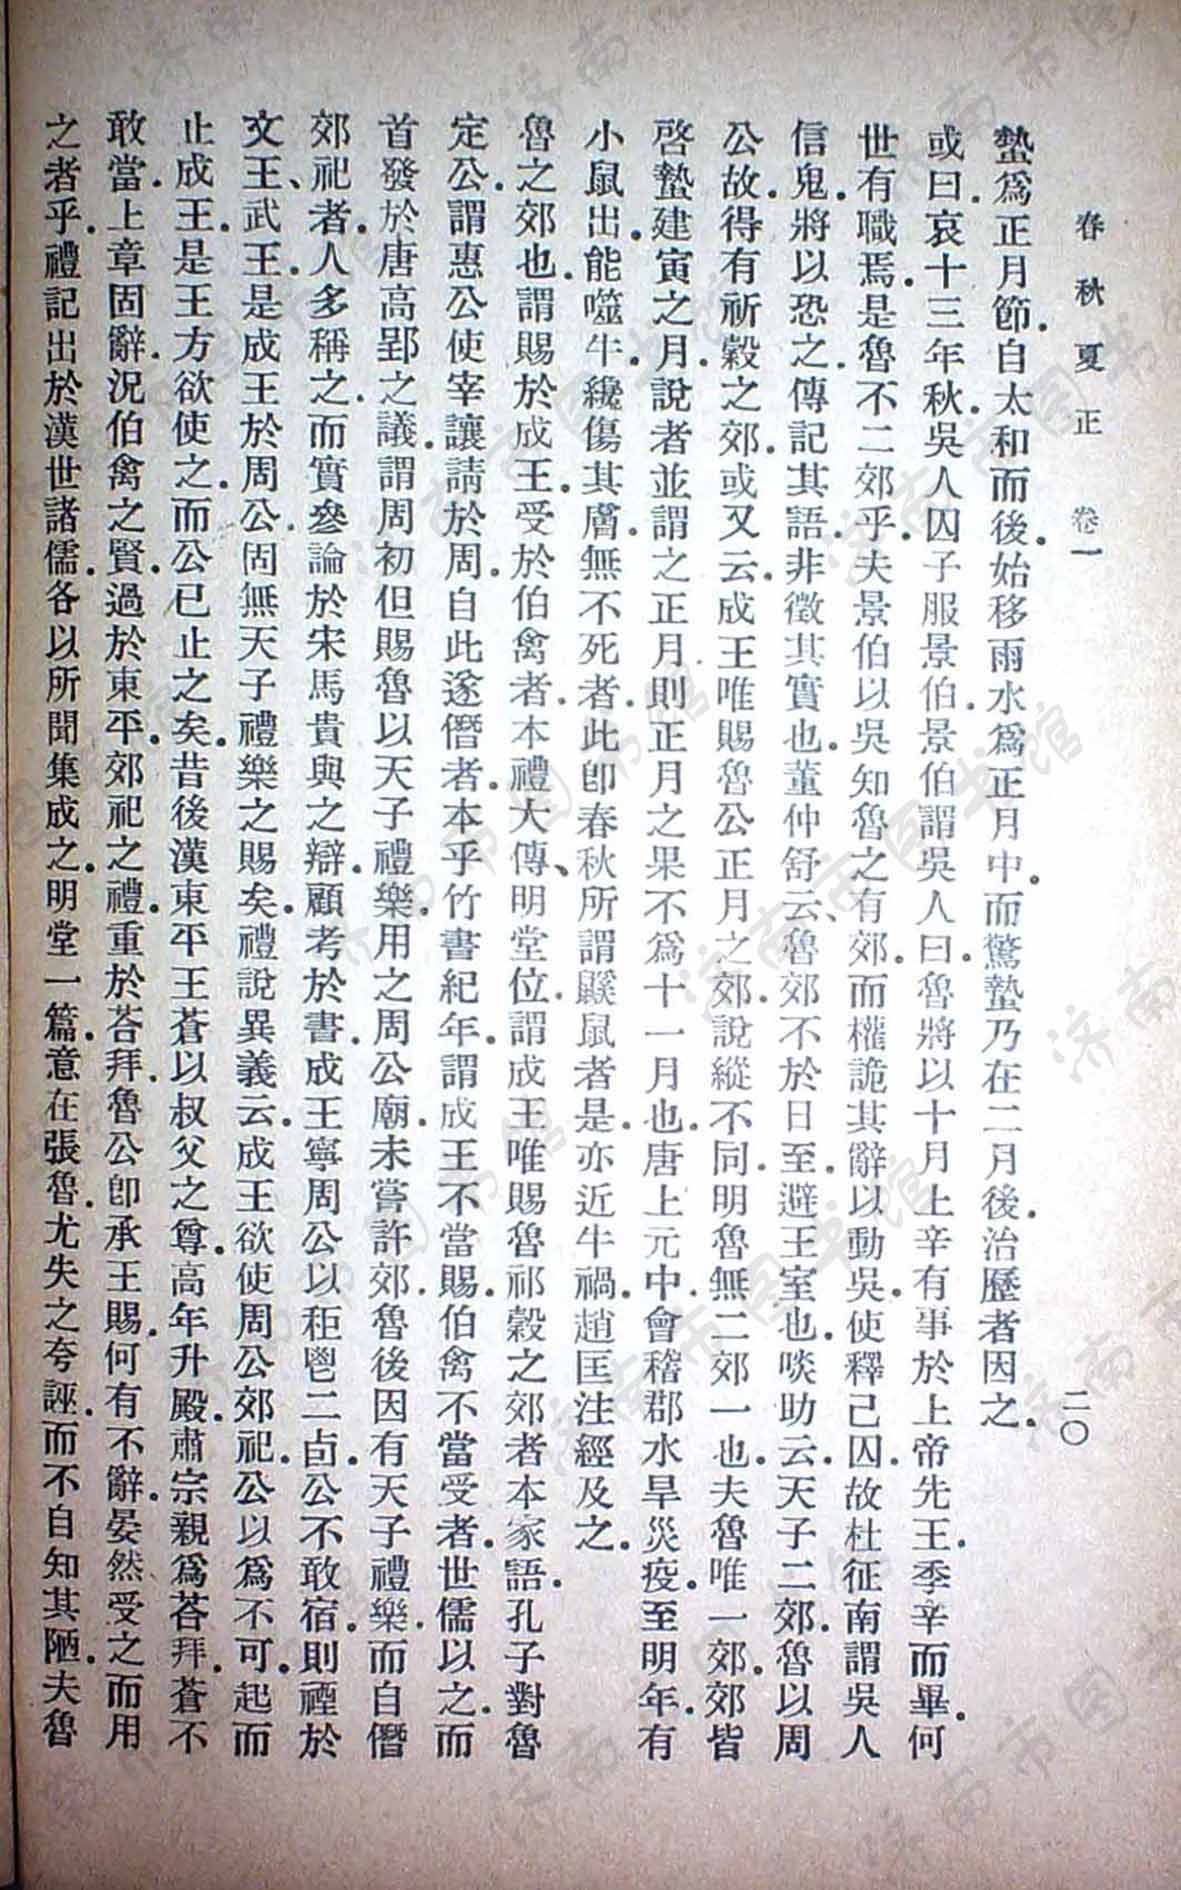 春秋夏正 卷一 二〇
蟄爲正月節.自太和而後.始移雨水爲正月中.而驚蟄乃在二月後.治歷者因之.
或曰.哀十三年秋.吳人囚子服景伯.景伯謂吳人曰.魯將以十月上辛有事於上帝先王.季辛而畢.何
世有職焉.是魯不二郊乎.夫景伯以吳知魯之有郊.而權詭其辭以動吳.使釋己囚.故杜征南謂吳人
信鬼.將以恐之.傳記其語.非徵其實也.董仲舒云、魯郊不於日至.避王室也.啖助云.天子二郊.魯以周
公故.得有祈穀之郊.或又云.成王唯賜魯公正月之郊.說縱不同.明魯無二郊一也.夫魯唯一郊.郊皆
啓蟄建寅之月.說者並謂之正月.則正月之果不爲十一月也.唐上元中.會稽郡水旱災疫.至明年.有
小鼠出.能噬牛.纔傷其膚.無不死者.此卽春秋所謂鼷鼠者是.亦近牛禍.趙匡注經及之.
魯之郊也.謂賜於成王.受於伯禽者.本禮大傳、明堂位.謂成王唯賜魯祁穀之郊者.本家語.孔子對魯
定公.謂惠公使宰讓請於周.自此遂僭者.本乎竹書紀年.謂成王不當賜.伯禽不當受者.世儒以之.而
首發於唐高郢之議.謂周初但賜魯以天子禮樂.用之周公廟.未嘗許郊.魯後因有天子禮樂.而自僭
郊祀者.人多稱之.而實參論於宋馬貴與之辯.顧考於書.成王寧周公以秬鬯二卣.公不敢宿.則禋於
文王、武王.是成王於周公.固無天子禮樂之賜矣.禮說異義云.成王欲使周公郊祀.公以爲不可.起而
止成王.是王方欲使之.而公已止之矣.昔後漢東平王蒼以叔父之尊.高年升殿.肅宗親爲荅拜.蒼不
敢當.上章固辭.況伯禽之賢.過於東平.郊祀之禮.重於荅拜.魯公卽承王賜.何有不辭.晏然受之而用
之者乎.禮記出於漢世諸儒.各以所聞集成之.明堂一篇.意在張魯.尤失之夸誣.而不自知其陋.夫魯